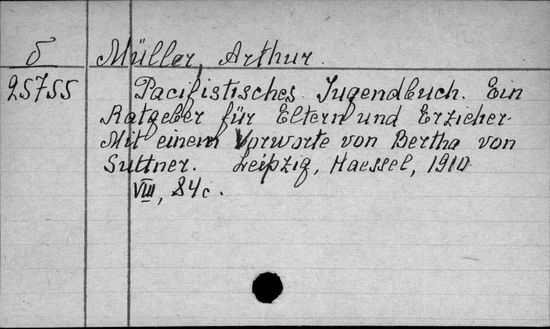 б Müller, Arthur.
25755 Pacifistisches Jugendbuch. Ein
Ratgeber für Eltern und Erzieher.
Mit einem Vorworte von Bertha von
Suttner. Leipzig, Haessel, 1910
VIII, 84 с.